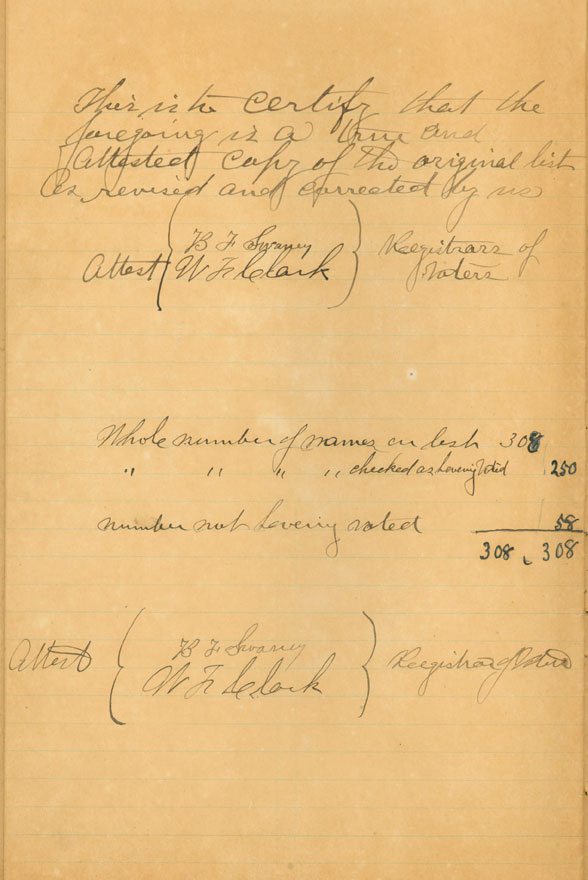 This is to certify that the
foregoing is a true and
Attested copy of the original list
as revised and corrected by us
B F Swaney
Attest W F Clark Registrars of
Voters
Whole number of names on list 308
" " " " checked as having voted 250
number not having voted 58
308 308
B F Swaney
Attest W F Clark Registrar of Voters